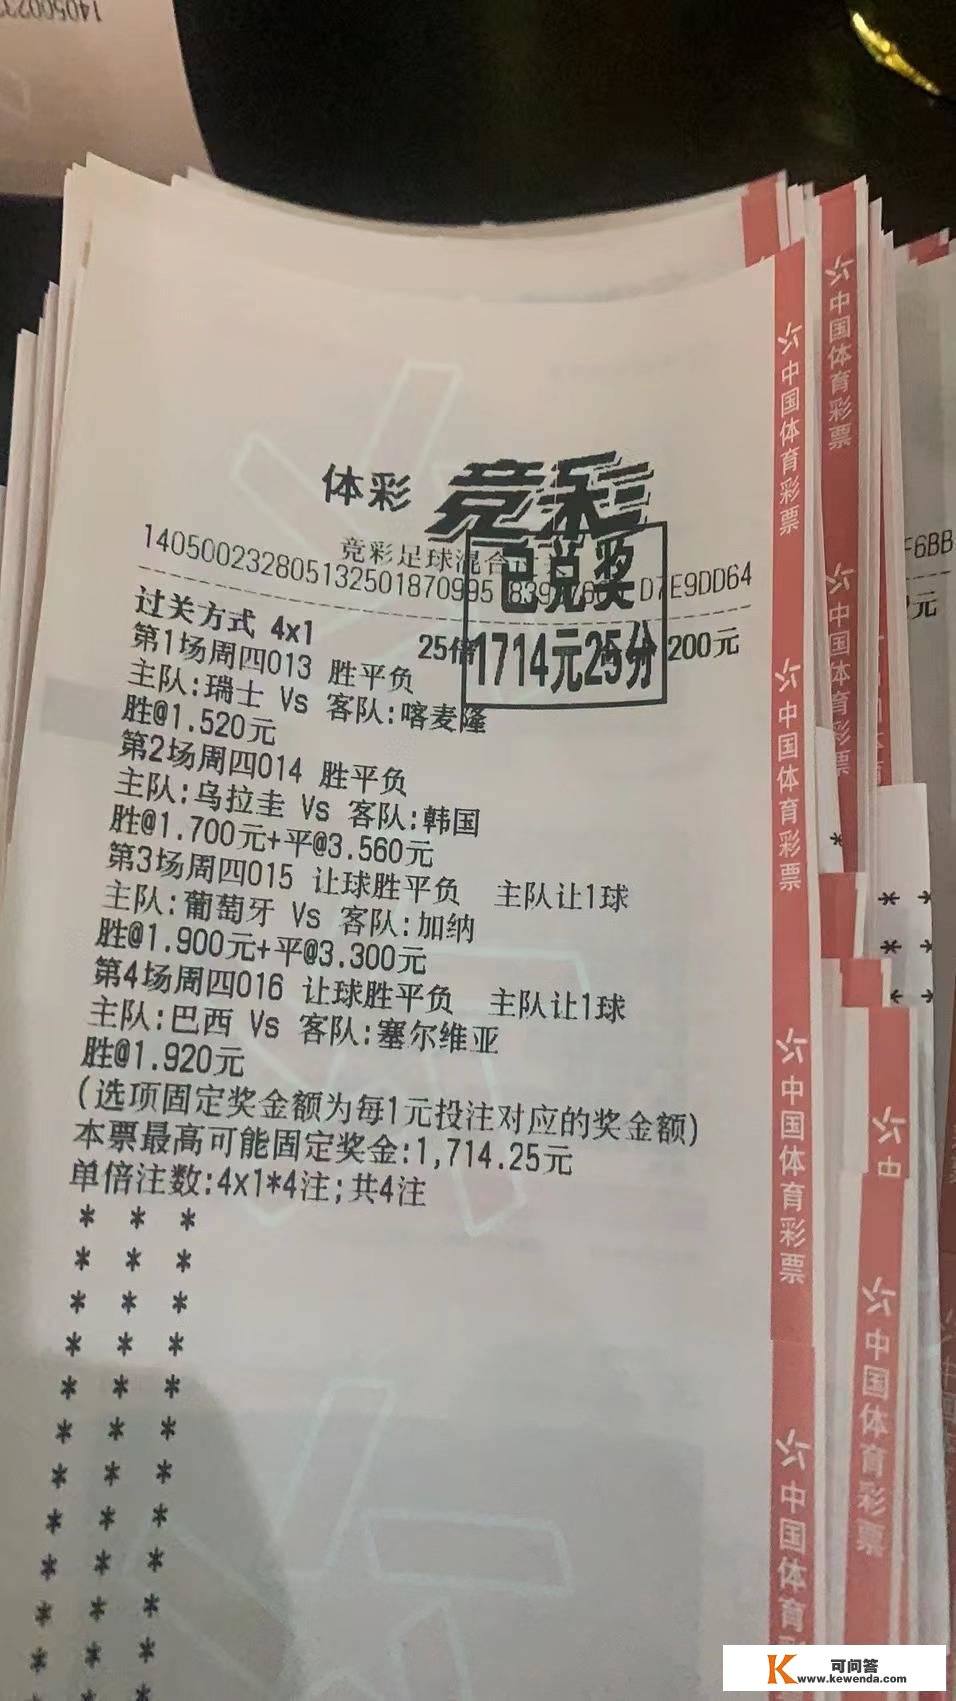 体彩 竞彩
竞彩足球混合过关
140500232805132501870995 839 76 D7E9DD64
已兑奖
1714元25分
过关方式 4x1
25倍
200元
第1场周四013 胜平负
主队:瑞士 Vs 客队:喀麦隆
胜@1.520元
第2场周四014 胜平负
主队:乌拉圭 Vs 客队:韩国
胜@1.700元+平@3.560元
第3场周四015 让球胜平负 主队让1球
主队:葡萄牙 Vs 客队:加纳
胜@1.900元+平@3.300元
第4场周四016 让球胜平负 主队让1球
主队:巴西 Vs 客队:塞尔维亚
胜@1.920元
(选项固定奖金额为每1元投注对应的奖金额)
本票最高可能固定奖金:1,714.25元
单倍注数:4x1*4注;共4注
中国体育彩票
中国体育彩票
中国体育彩票
中国体育彩票
中国体育
中国体育彩票
中国体育彩票
中
中国体育彩票
F6BB
元
可问答
www.kewenda.com